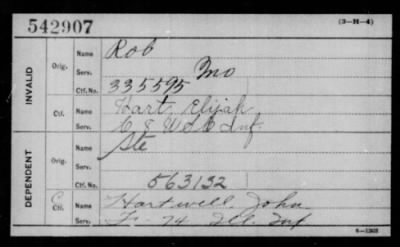 542907
(3-H-4)
INVALID
Orig.
Name Rob
Serv. Mo
Ctf. No. 335595
Ctf.
Name Hart, Elijah
Serv. Inf
DEPENDENT
Orig.
Name Ste
Serv.
Ctf. No. 563132
C
Ctf.
Name Hartwell, John
Serv. 74 Ill. Inf